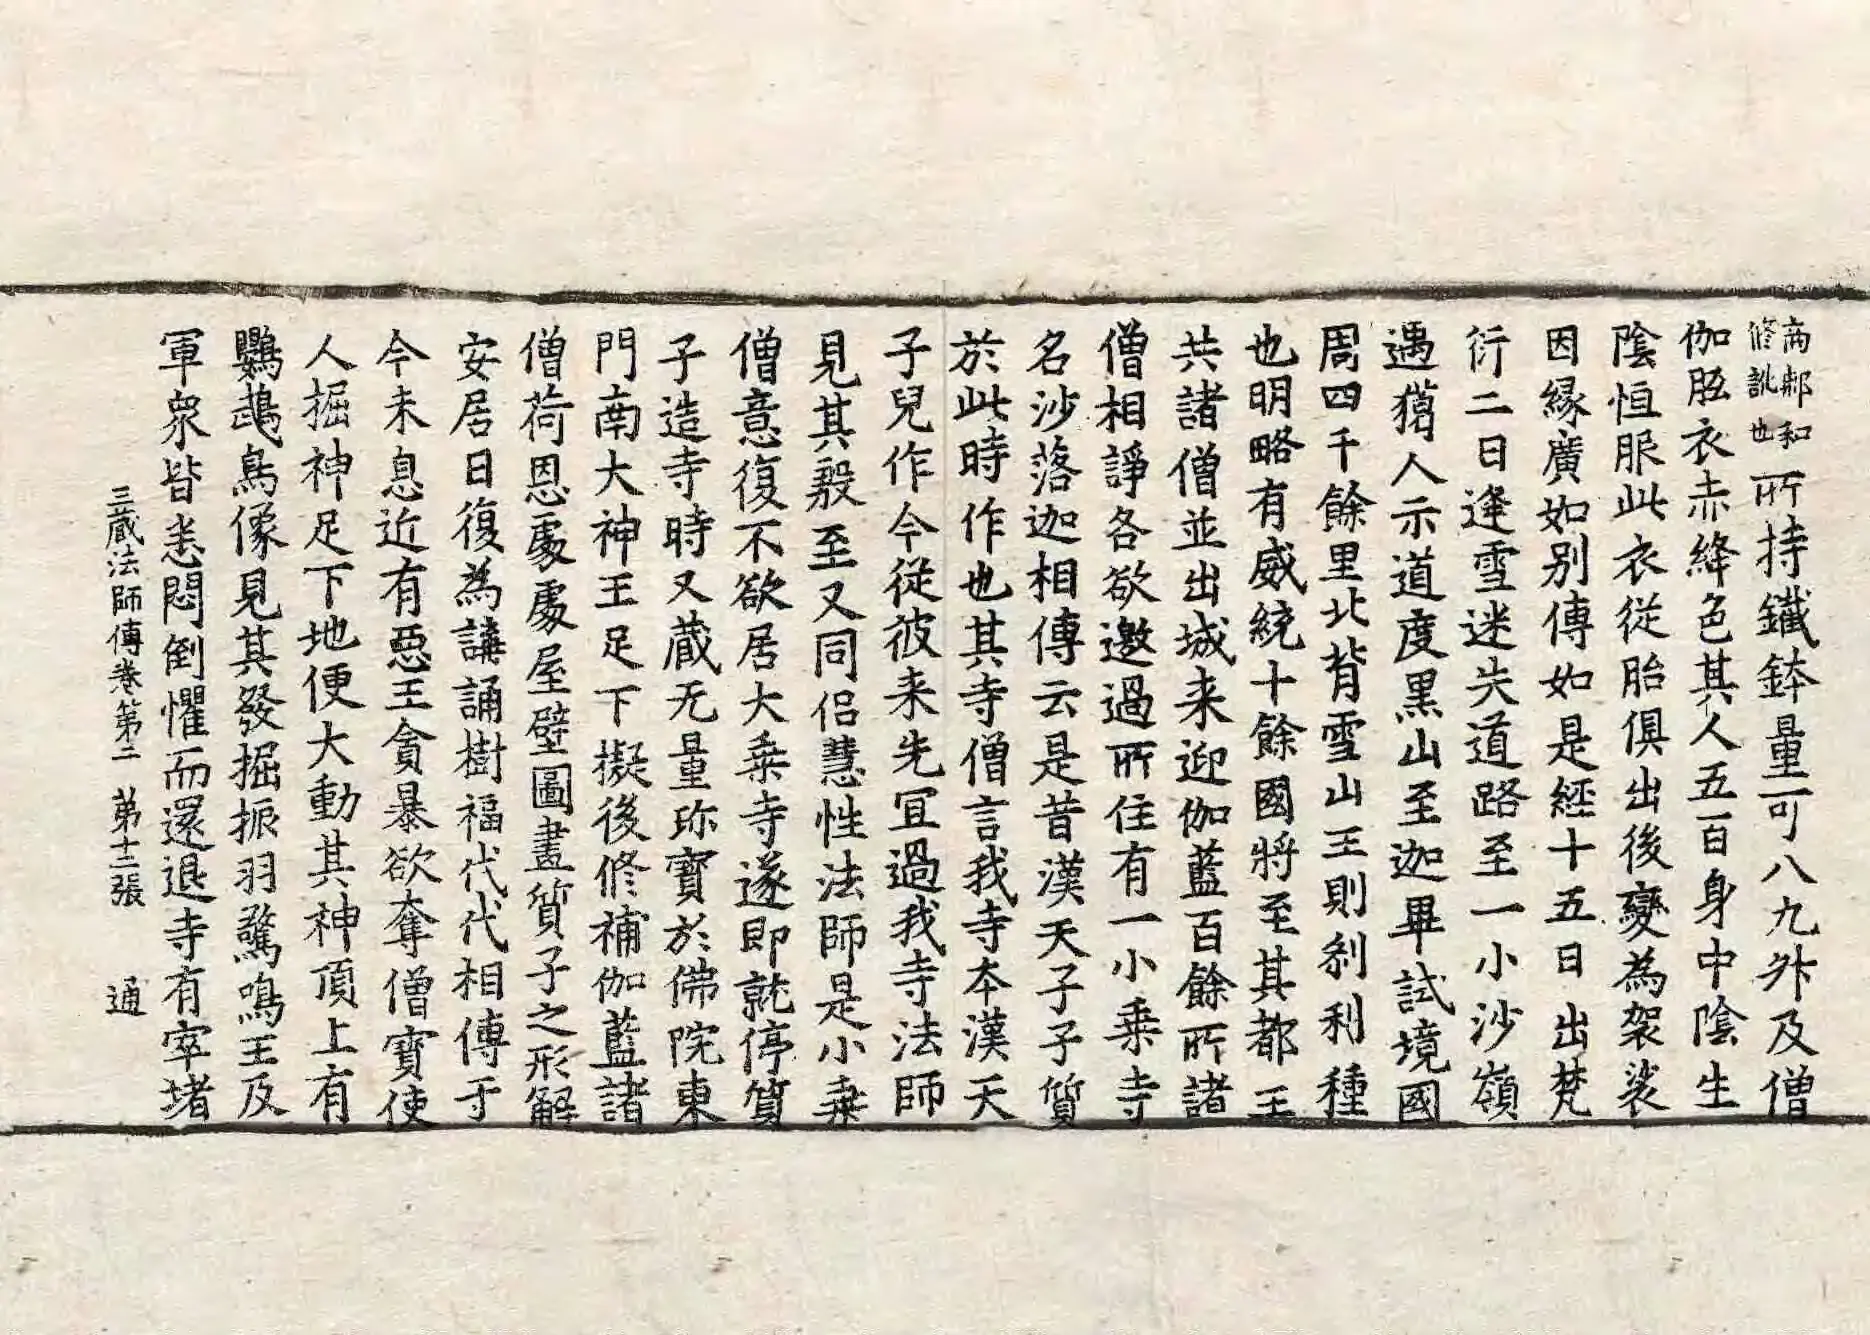 商那和
修訛也
所持鐵鉢量可八九升及僧
伽胝衣赤絳色其人五百身中陰生
陰恒服此衣從胎俱出後變為袈裟
因緣廣如別傳如是經十五日出梵
衍二日逢雪迷失道路至一小沙嶺
遇獵人示道度黑山至迦畢試境國
周四千餘里北背雪山王則剎利種
也明略有威統十餘國將至其都王
共諸僧並出城来迎伽藍百餘所諸
僧相諍各欲邀過所住有一小乗寺
名沙落迦相傳云是昔漢天子子質
於此時作也其寺僧言我寺本漢天
子兒作今從彼来先宜過我寺法師
見其殷至又同侣慧性法師是小乗
僧意復不欲居大乗寺遂即就停質
子造寺時又蔵无量珎寶於佛院東
門南大神王足下擬後修補伽藍諸
僧荷恩處處屋壁圖畫質子之形解
安居日復為講誦樹福代代相傳于
今未息近有惡王貪暴欲奪僧寶使
人掘神足下地便大動其神頂上有
鸚鵡鳥像見其發掘振羽驚鳴王及
軍眾皆悉悶倒懼而還退寺有窣堵
三蔵法師傳卷第二　第十二張　通